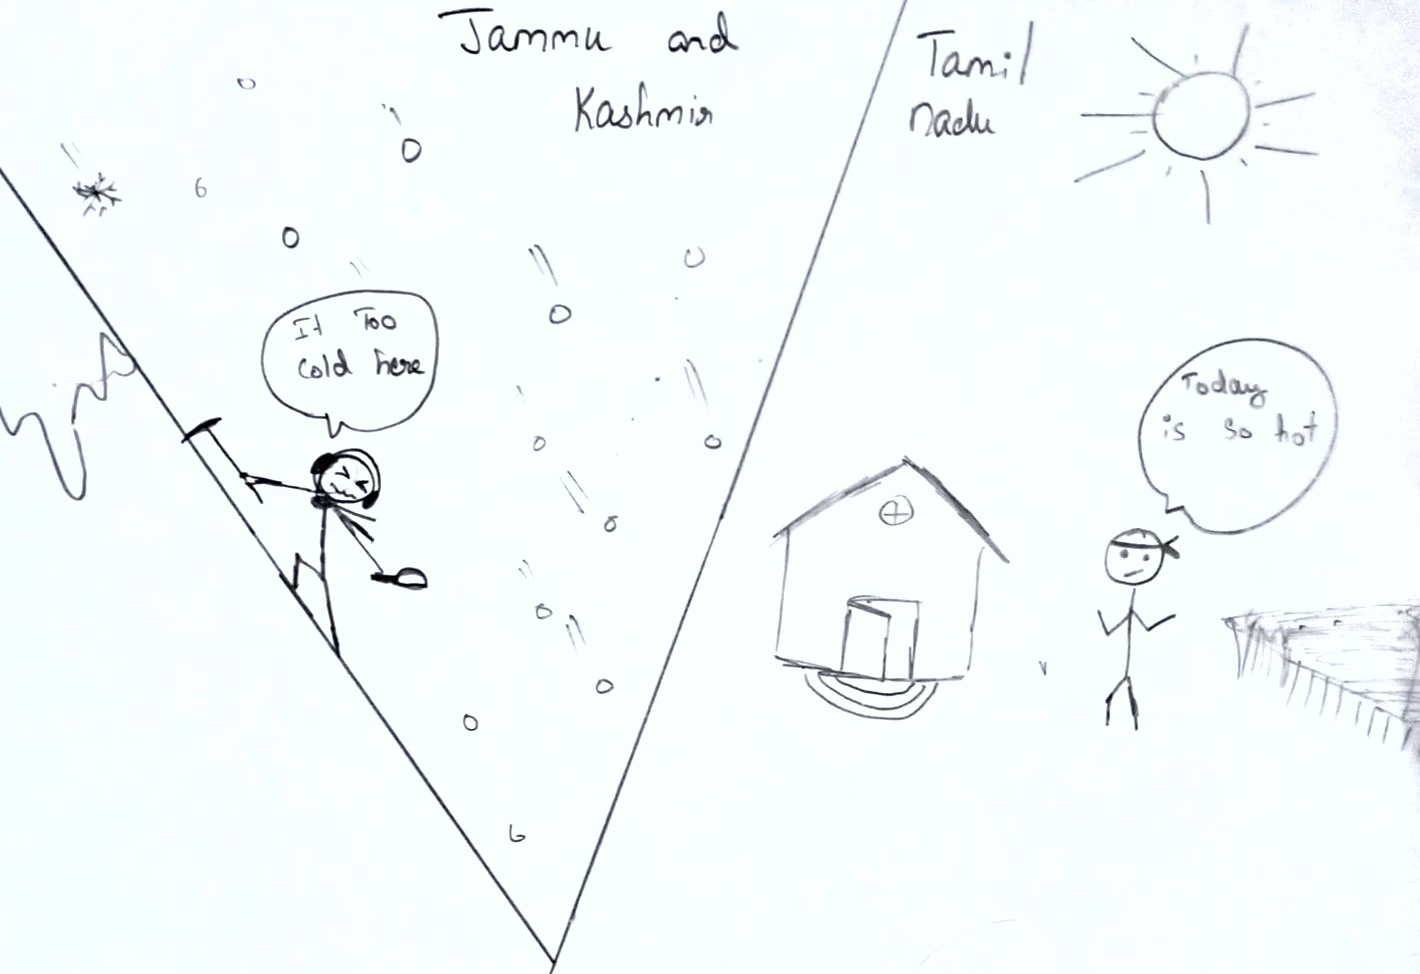 Jammu and
Kashmir
It Too
cold here
Tamil
nadu
Today
is so hot